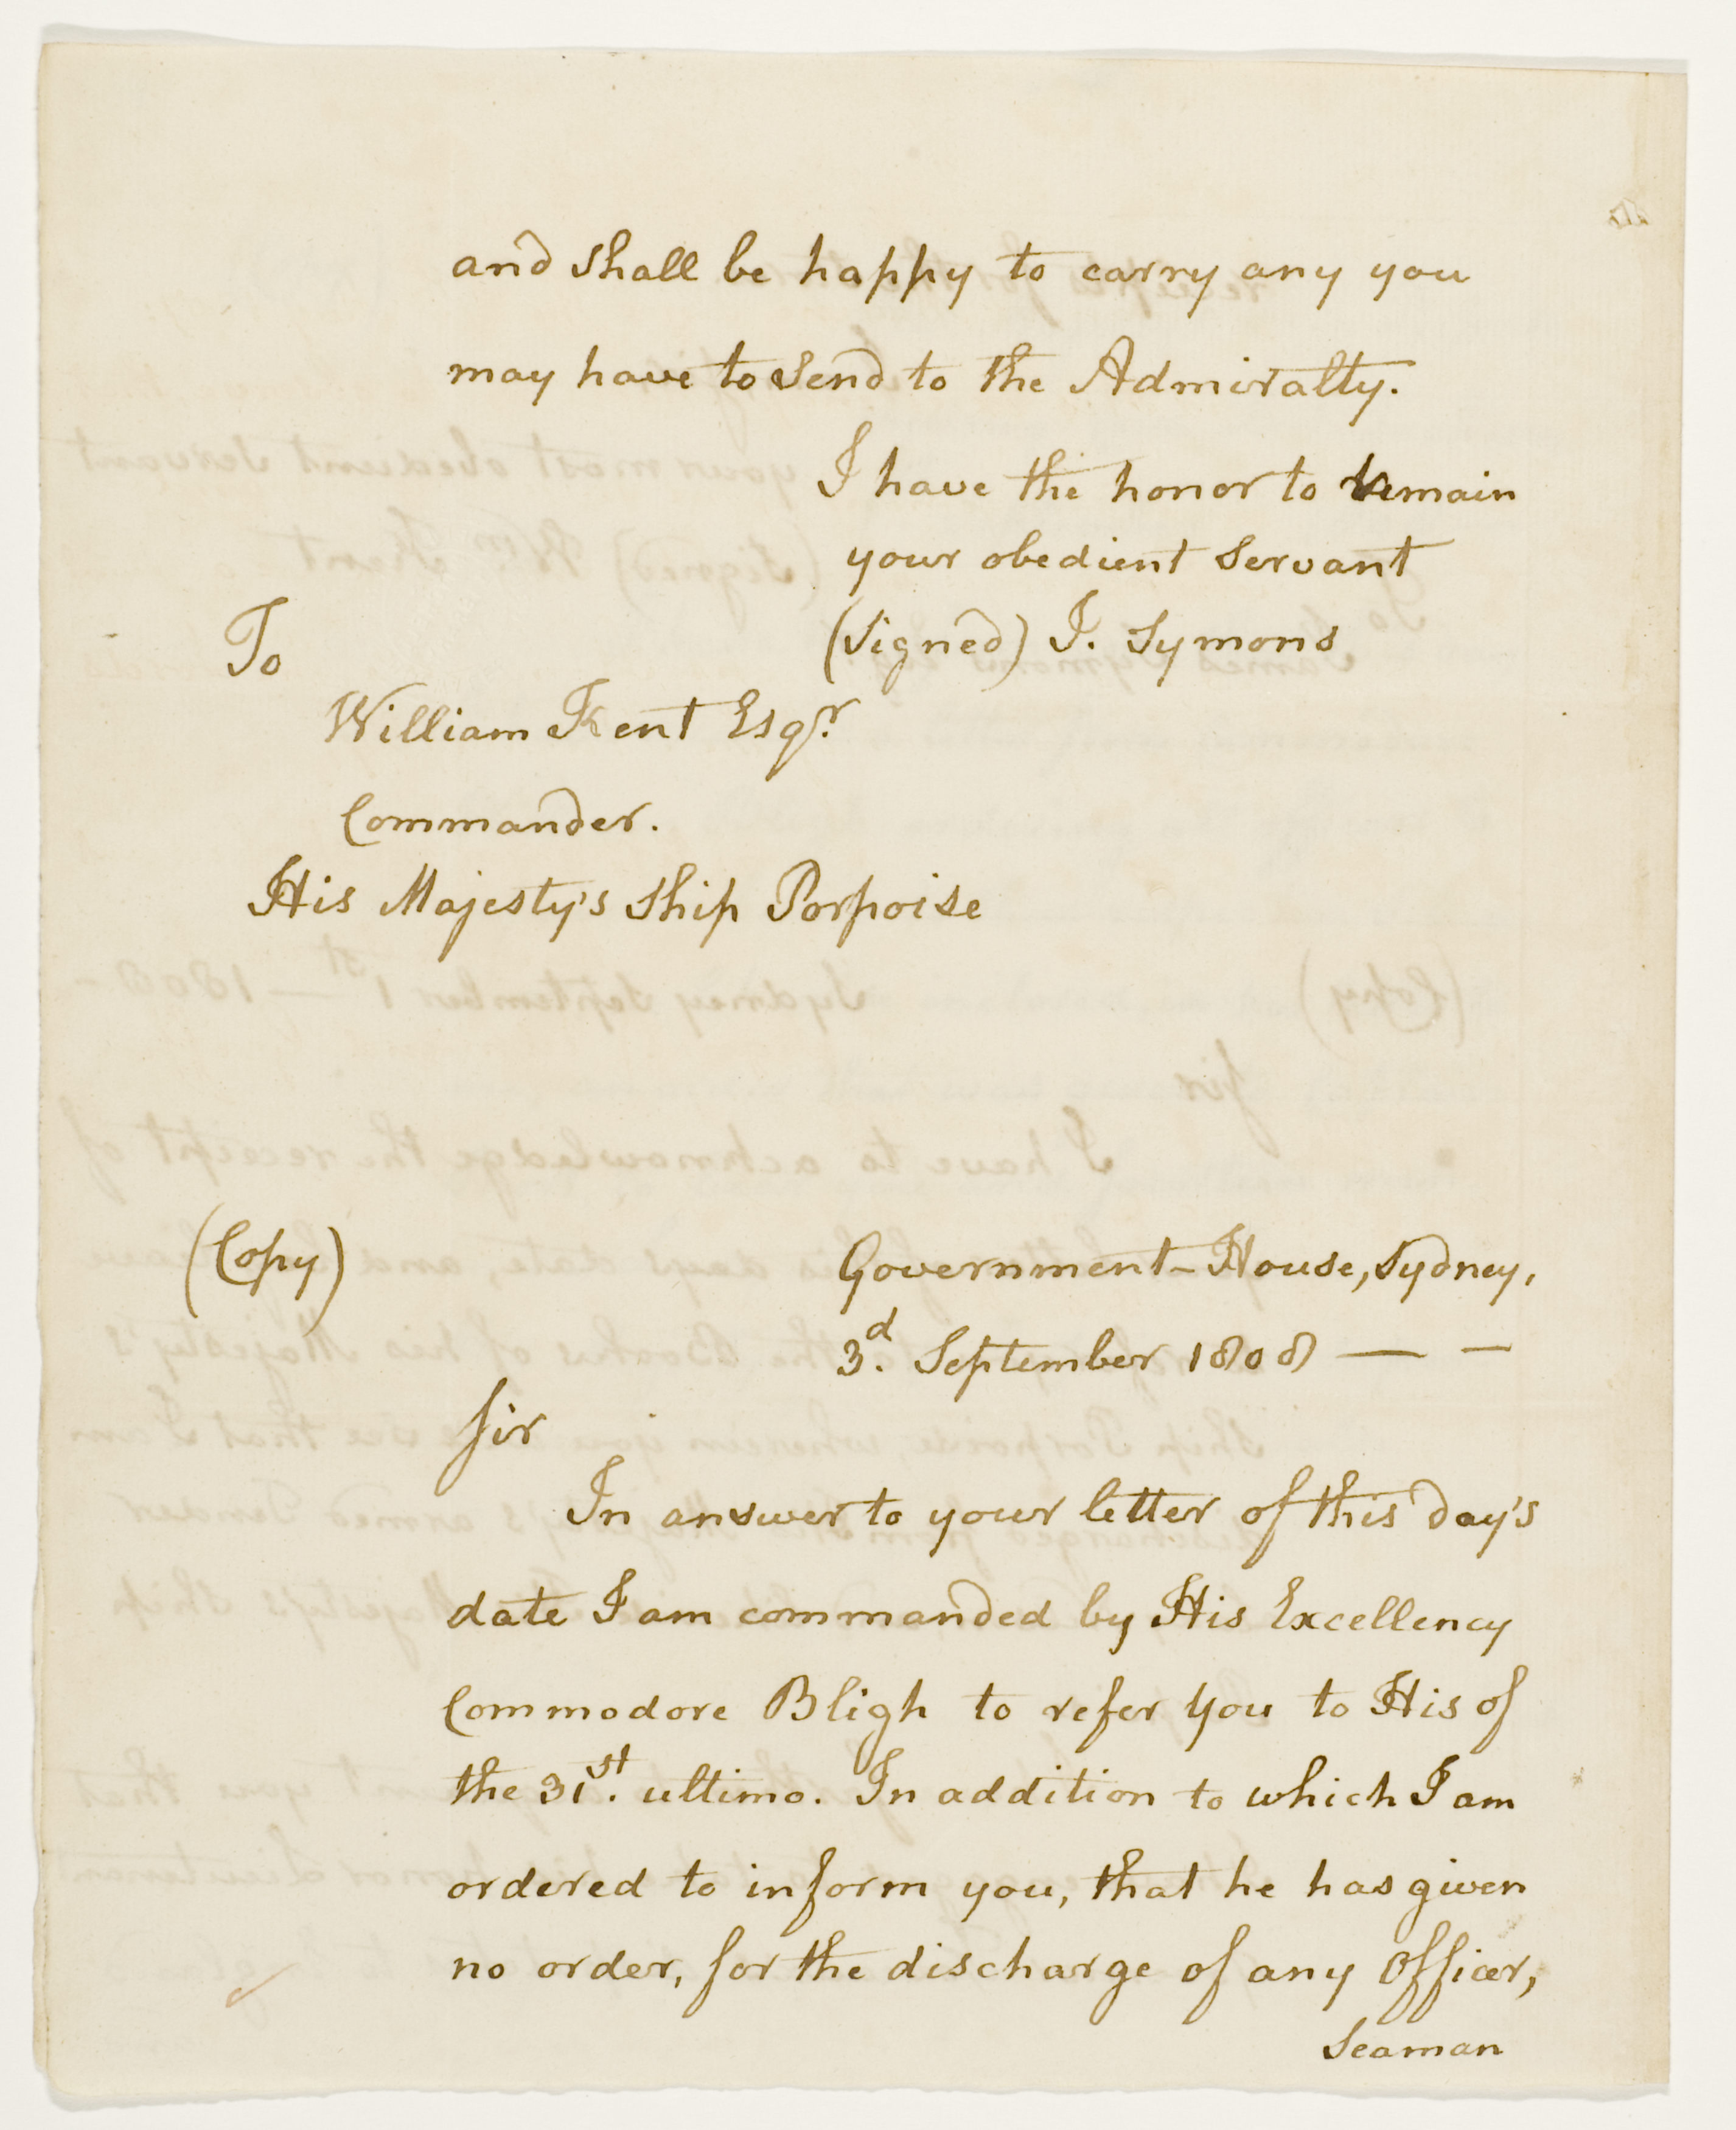 and shall be happy to carry any you
may have to send to the Admiralty.
I have the honor to remain
your obedient Servant
(Signed) J. Symons
To
William Kent Esqr.
Commander.
His Majesty's Ship Porpoise
(Copy)
Government-House, Sydney,
3d. September 1808 — —
Sir
In answer to your letter of this day's
date I am commanded by His Excellency
Commodore Bligh to refer you to His of
the 31st. ultimo. In addition to which I am
ordered to inform you, that he has given
no order, for the discharge of any Officer,
Seaman